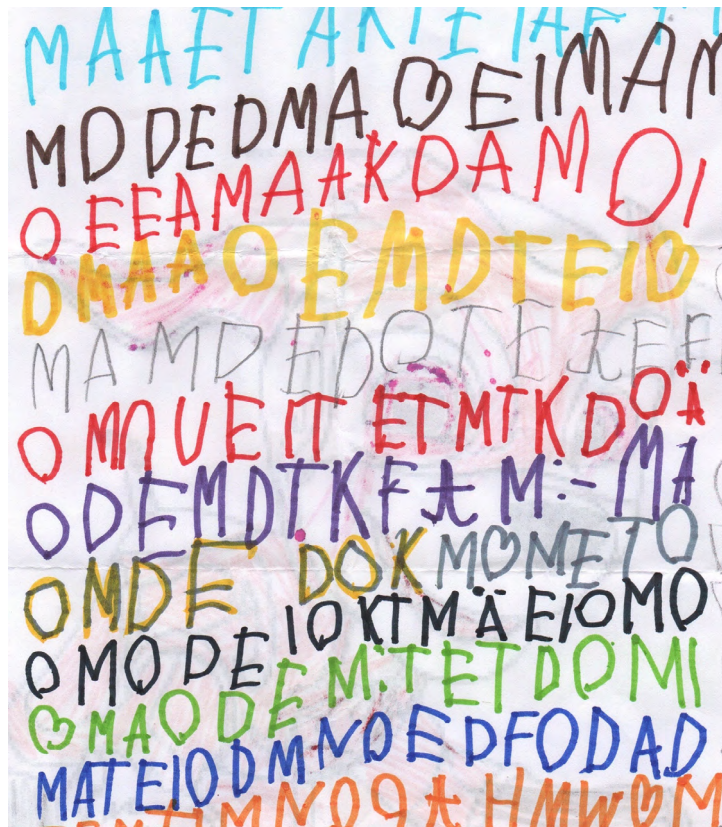 MAAET AKTETAET
MDDEDMA OEIMAM
OEEAMAAKDAMOI
DMAAOEMDTEIO
MAMDEDOTETEEF
OMNUEIT ETMTKDOÄ
ODEMDT.KFtM:-MA
ONDE DOKMOMETO
OMODE IOKTMÄEIOMO
OMAODEM:TETDOMI
MATEIODMNDEDFODAD